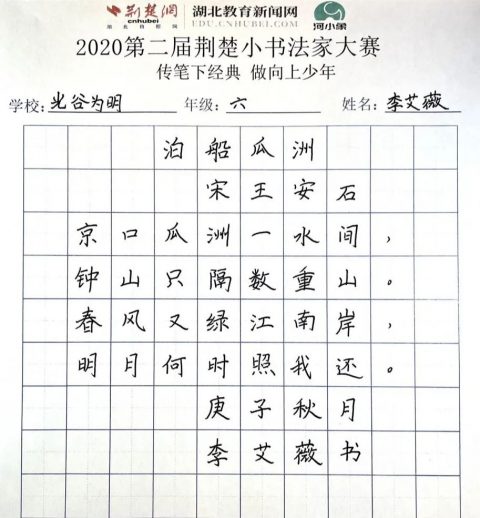 荆楚网
cnhubei.com
湖北教育新闻网
EDU.CNHUBEI.COM
河小象
2020第二届荆楚小书法家大赛
传笔下经典 做向上少年
学校:光谷为明 年级:六 姓名:李艾薇
泊船瓜洲
宋王安石
京口瓜洲一水间,
钟山只隔数重山。
春风又绿江南岸,
明月何时照我还。
庚子秋月
李艾薇书